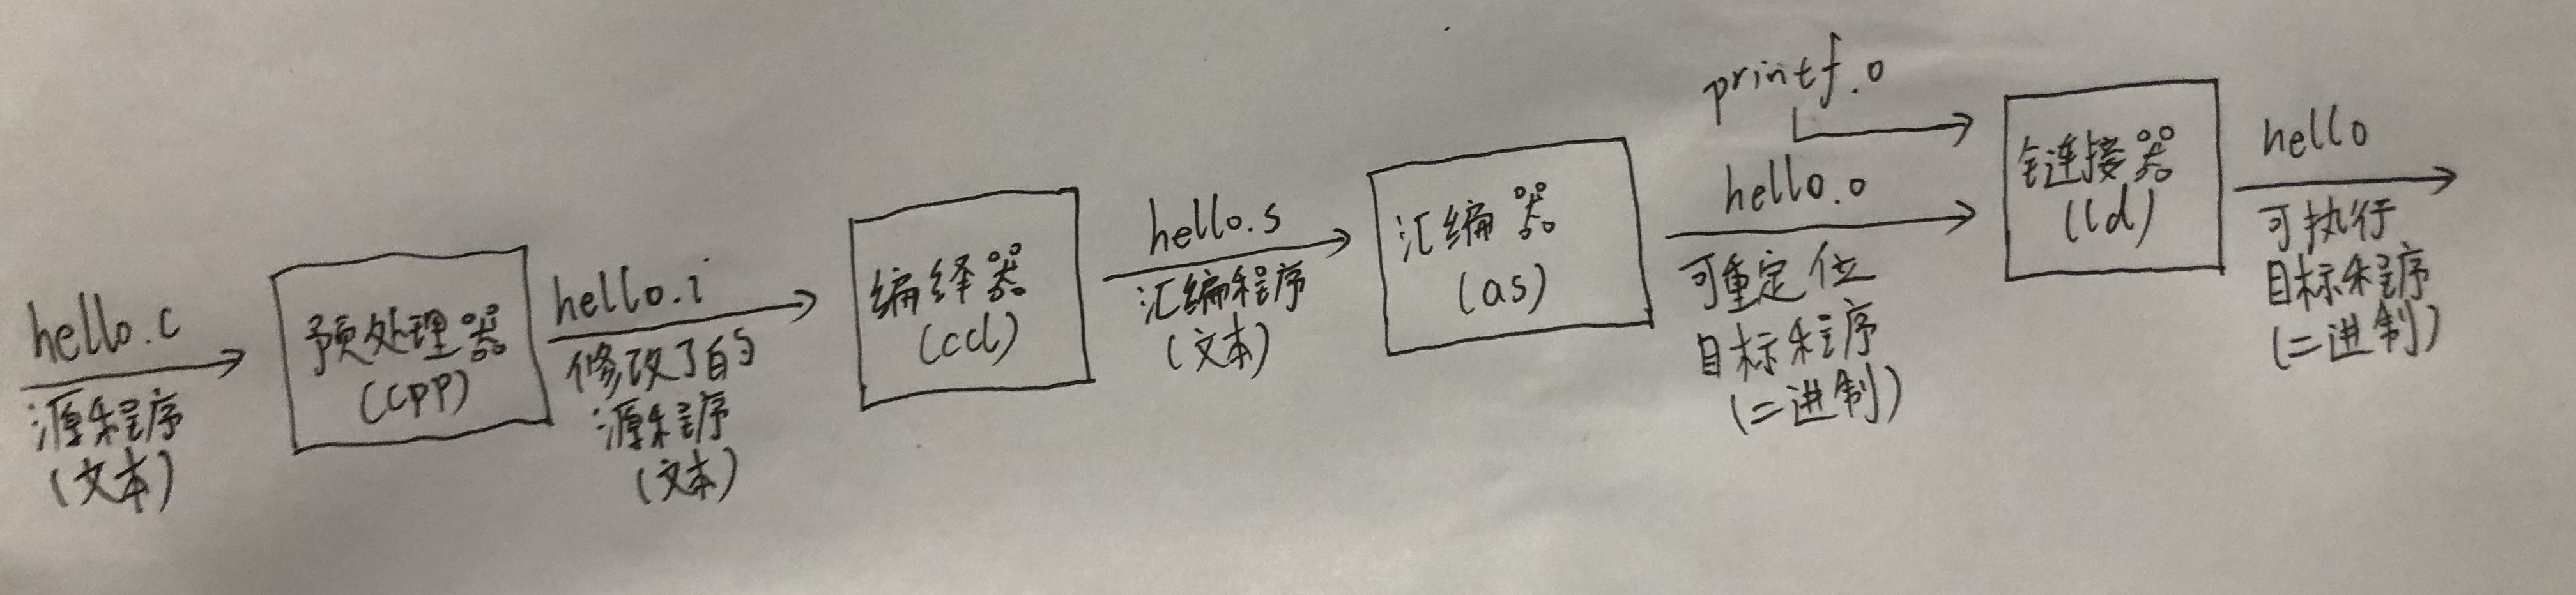 hello.c
源程序
(文本)
预处理器
(cpp)
hello.i
修改了的
源程序
(文本)
编译器
(ccl)
hello.s
汇编程序
(文本)
汇编器
(as)
printf.o
hello.o
可重定位
目标程序
(二进制)
链接器
(ld)
hello
可执行
目标程序
(二进制)